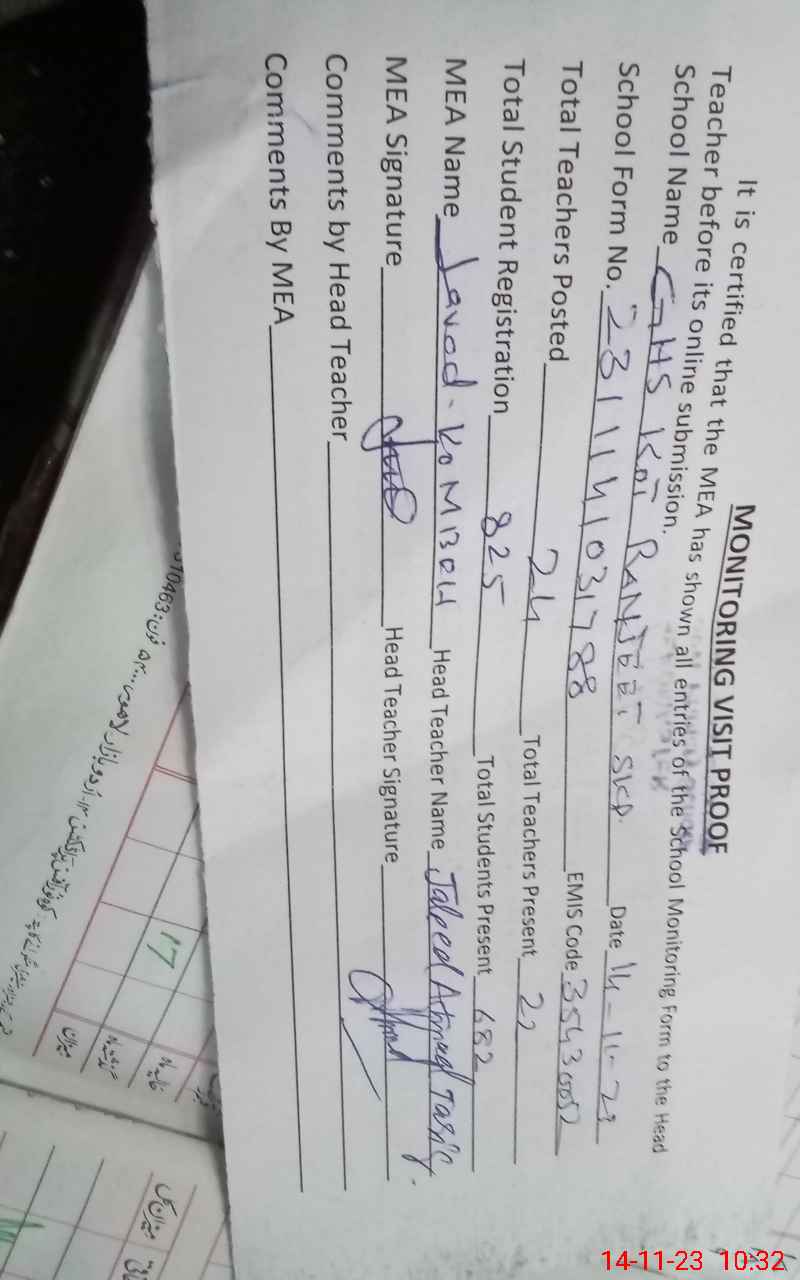 MONITORING VISIT PROOF
It is certified that the MEA has shown all entries of the School Monitoring Form to the Head
Teacher before its online submission.
School Name GHS KOT RANJEET SKP. Date 14-11-23
School Form No. 2311141031788 EMIS Code 35430052
Total Teachers Posted 24 Total Teachers Present 22
Total Student Registration 825 Total Students Present 682
MEA Name Javed-KOMBOH Head Teacher Name Ahmad
MEA Signature Head Teacher Signature
Comments by Head Teacher
Comments By MEA
17
میزان
14-11-23 10:32